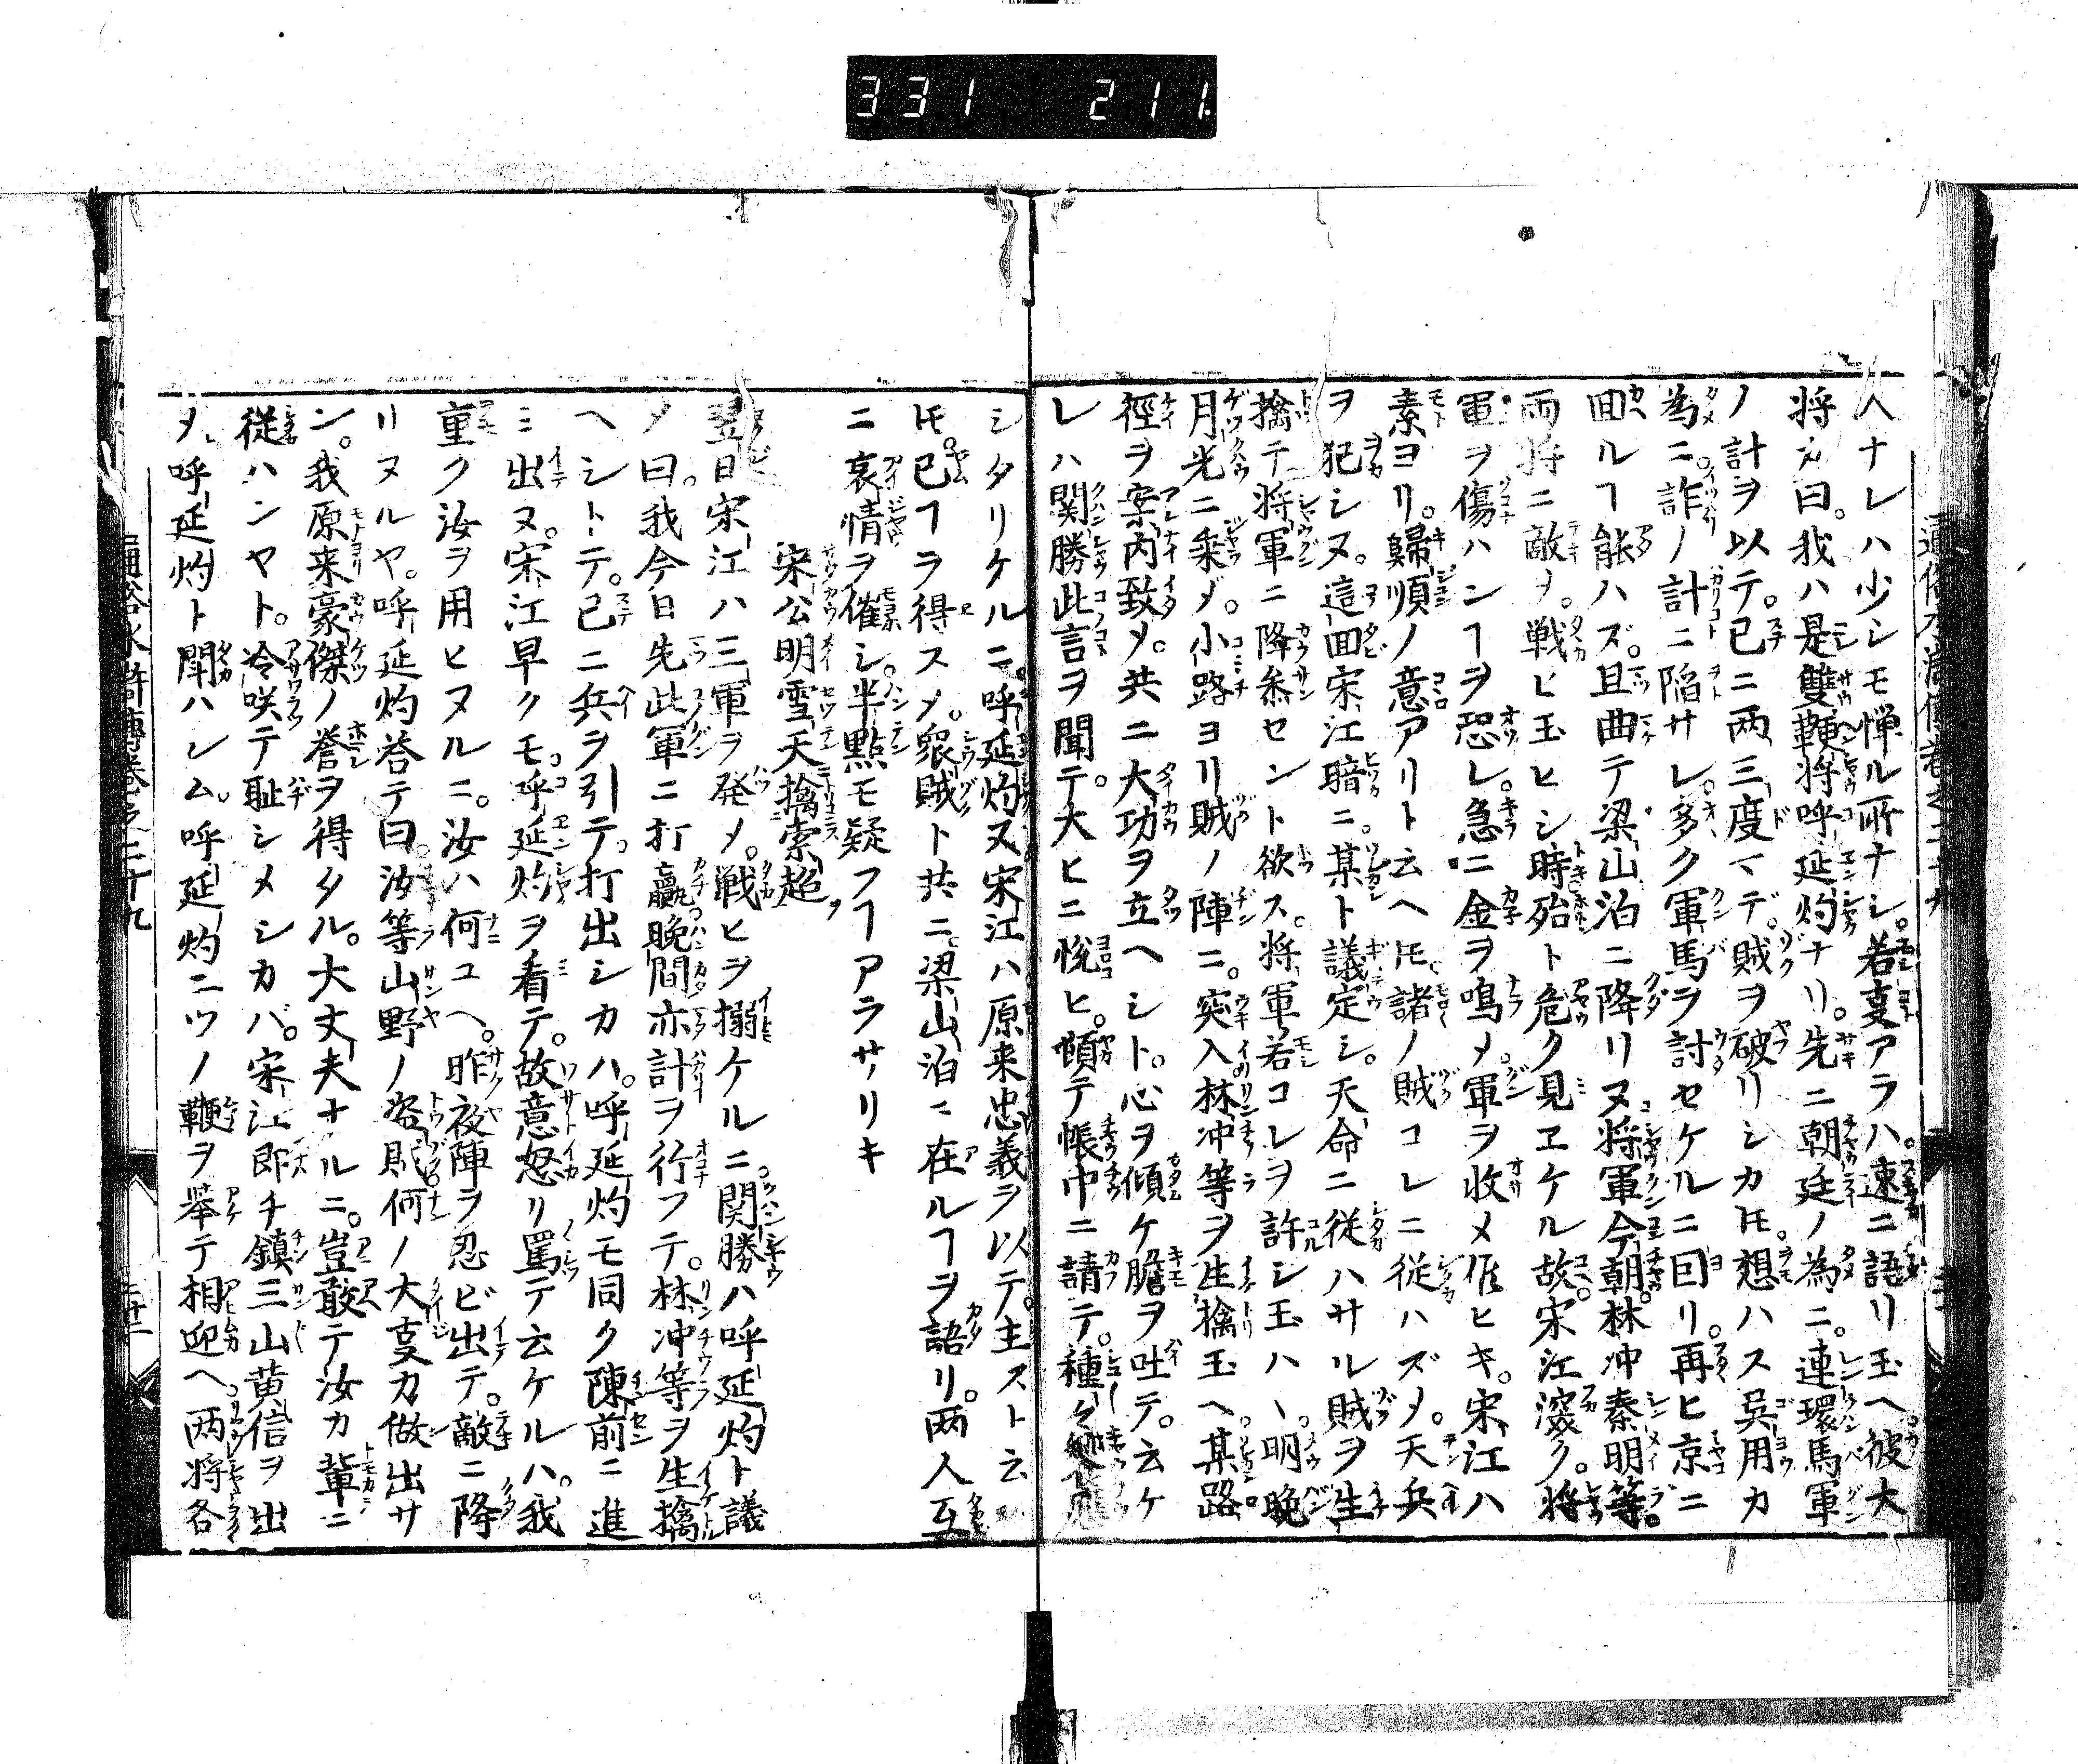 331 211
通俗水滸傳巻之二十九
人ナレハ少シモ憚ル所ナシ。若叓アラハ。速ニ語リ玉ヘ。彼大
将カ曰。我ハ是雙鞭将呼延灼ナリ。先ニ朝廷ノ為ニ。連環馬軍
ノ計ヲ以テ。已ニ両三度マデ。賊ヲ破リシカ𪜈。想ハス呉用カ
為ニ。詐ノ計ニ陥サレ。多ク軍馬ヲ討セケルニ囙リ。再ヒ京ニ
回ルヿ能ハズ。且曲テ梁山泊ニ降リヌ将軍今朝。林冲秦明等。
両将ニ敵ヲ。戦ヒ玉ヒシ時殆ト危ク見ヱケル故。宋江深ク。将
軍ヲ傷ハンヿヲ恐レ。急ニ金ヲ鳴メ。軍ヲ收メ候ヒキ。宋江ハ
素ヨリ。歸順ノ意アリト云ヘ𪜈。諸ノ賊コレニ従ハズメ。天兵
ヲ犯シヌ。這回宋江暗ニ。某ト議定シ。天命ニ従ハサル賊ヲ生
擒テ将軍ニ降叅セント欲ス。将軍若コレヲ許シ玉ハヽ。明晩
月光ニ乗ダ。小路ヨリ賊ノ陣ニ。突入林冲等ヲ生擒玉ヘ。某路
徑ヲ案内致メ。共ニ大功ヲ立ヘシト。心ヲ傾ケ膽ヲ吐テ。云ケ
レハ関勝此言ヲ聞テ。大ヒニ悦ヒ。頓テ帳中ニ請テ。種々
シタリケルニ。呼延灼又宋江ハ原来忠義ヲ以テ。主スト云
𪜈。已ヿヲ得スメ。衆賊ト共ニ。梁山泊ニ在ルヿヲ語リ。両人互
ニ哀情ヲ催シ。半點モ疑フヿアラサリキ
宋公明雪天擒索超
翌日宋江ハ三軍ヲ発メ。戦ヒヲ搦ケルニ。関勝ハ呼延灼ト議
メ曰。我今日先此軍ニ打贏。晩間亦計ヲ行フテ。林冲等ヲ生擒
ヘシトテ。已ニ兵ヲ引テ。打出シカハ。呼延灼モ同ク陳前ニ進
ミ出ヌ。宋江早クモ呼延灼ヲ看テ。故意怒リ罵テ云ケルハ。我
重ク汝ヲ用ヒヌルニ。汝ハ何ユヘ。昨夜陣ヲ忍ビ出テ。敵ニ降
リヌルヤ。呼延灼答テ曰。汝等山野ノ盗賊何ノ大叓カ做出サ
ン。我原来豪傑ノ誉ヲ得タル。大丈夫ナルニ。豈敢テ汝カ輩ニ
従ハンヤト。冷咲テ耻シメシカバ。宋江即チ鎮三山黄信ヲ出
メ。呼延灼ト閗ハレム。呼延灼ニツノ鞭ヲ挙テ相迎ヘ。両将各
通俗水滸傳巻之二十九